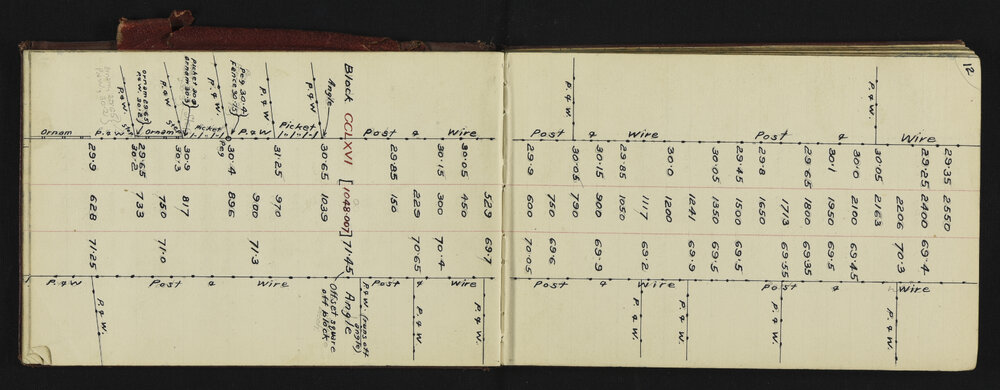 12
Post & Wire
Post & Wire
P. & W.
P. & W.
29.35 2550
29.25 2400 69.4
2206 70.3
30.05 2163
30.0 2100 69.45
30.1 1950 69.5
29.65 1800 69.35
1713 69.55
29.8 1650
29.45 1500 69.5
30.05 1350 69.5
1241 69.9
30.0 1200
1117 69.2
29.85 1050
30.15 900 69.9
30.05 790
750 69.6
29.9 600 70.05
Post & Wire
Post & Wire
P. & W.
P. & W.
P. & W.
P. & W.
529 69.7
30.05 450
30.15 300 70.4
229 70.65
29.85 150
Post & Wire
Post & Wire
P. & W.
P. & W.
P. & W. (runs off
angle)
Block CCLXVI [1048.00] 71.45 Angle
Offset square
off block
Angle
30.65 1039
P. & W.
Picket
31.25 970
900 71.3
P. & W.
P. & W
Peg 30.4
Fence 30.75
Peg
30.4 896
P. & W.
Picket
Picket 30.9
ornam 30.3
30.9 817
Ornam
30.3 750 71.0
P. & W.
ornam 29.65
P & W 30.2
29.65
30.2 733
P. & W
Ornam
29.9 628 71.25
P. & W.
Post & Wire
P. & W
P. & W.